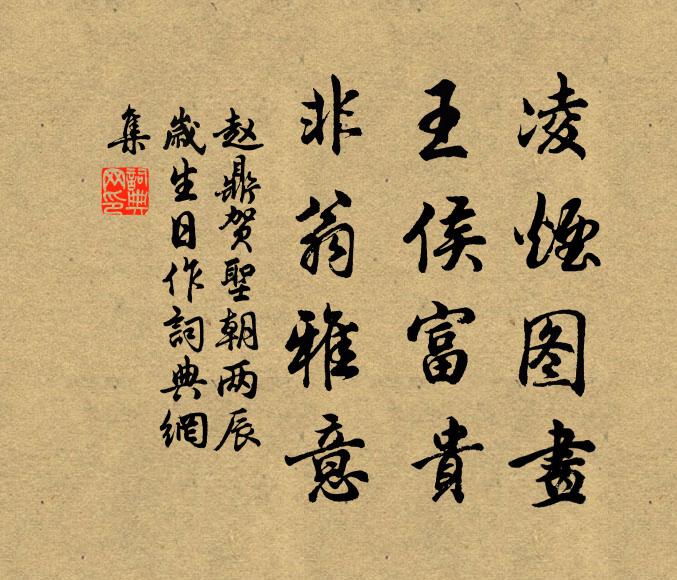 凌煙图畫
王侯富貴
非翁雅意
赵鼎贺聖朝两辰
歲生日作詞典網
集
詞典
网印